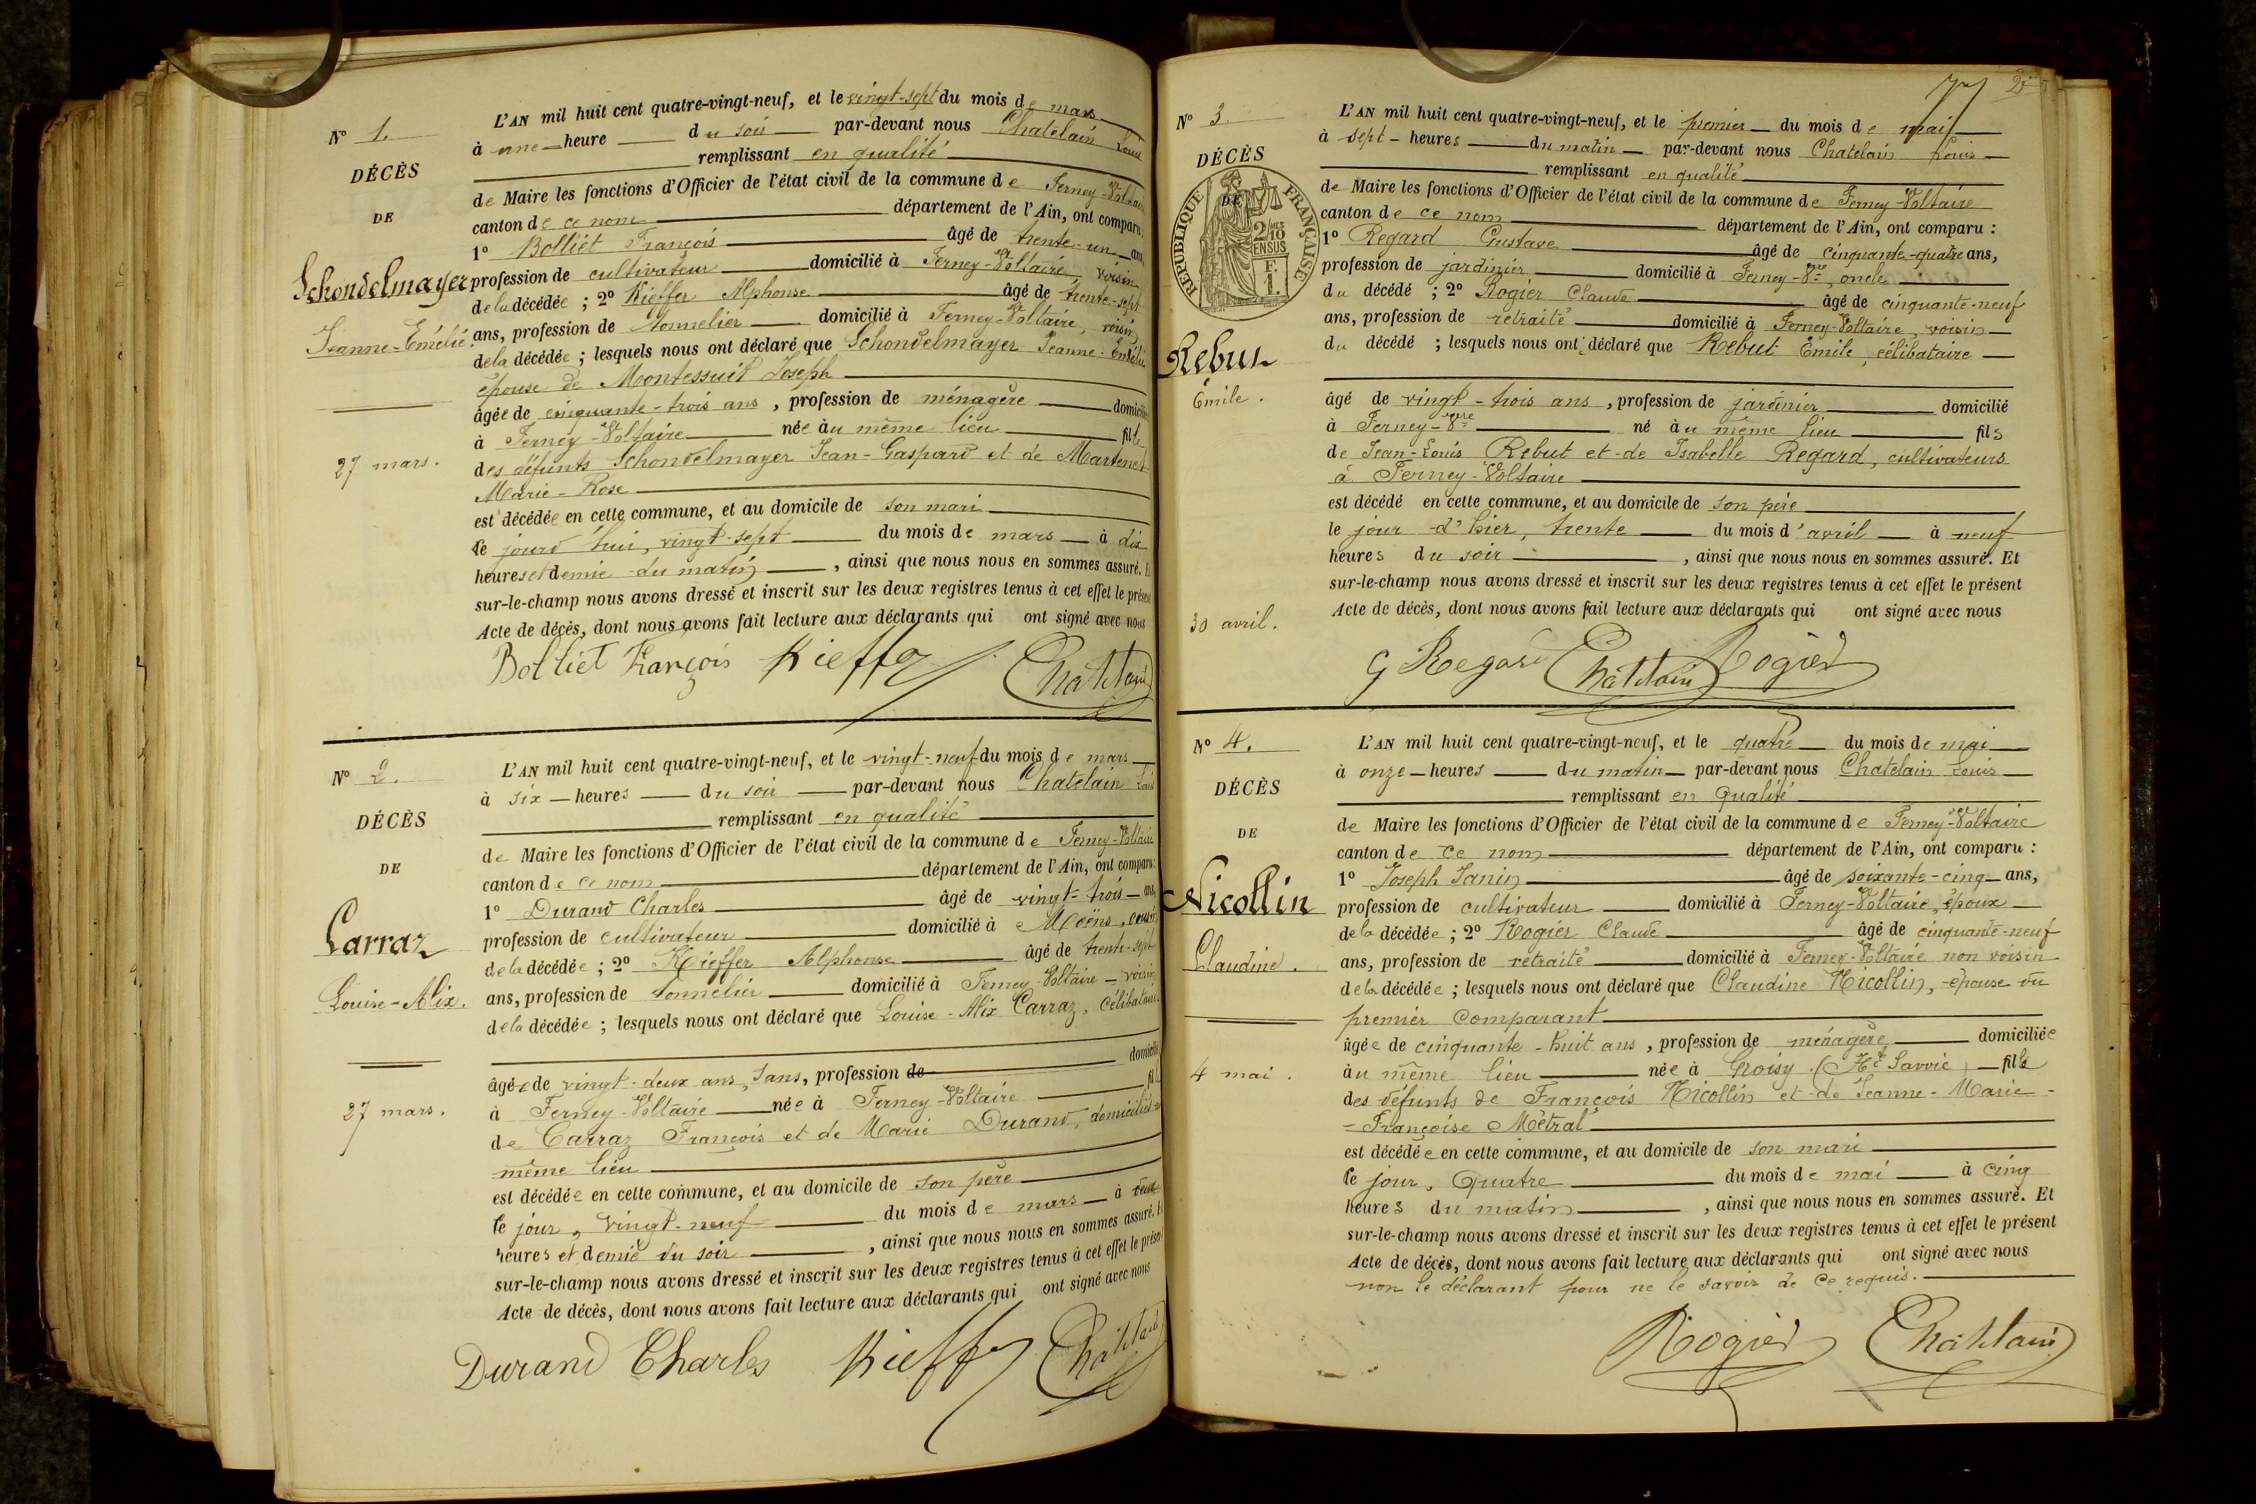 N° 1.
DÉCÈS
DE
Schondelmayer
Jeanne-Emélie.
27 mars.
L'AN mil huit cent quatre-vingt-neuf, et le vingt-sept du mois de mars
à une heure du soir par-devant nous Chatelain Louis
remplissant en qualité
de Maire les fonctions d'Officier de l'état civil de la commune de Ferney-Voltaire
canton de ce nom département de l'Ain, ont comparu :
1° Bolliet François âgé de trente-un ans,
profession de cultivateur domicilié à Ferney-Voltaire, voisin
de la décédée ; 2° Kieffer Alphonse âgé de trente-sept
ans, profession de tonnelier domicilié à Ferney-Voltaire, voisin
de la décédée ; lesquels nous ont déclaré que Schondelmayer Jeanne-Emélie
épouse de Montessuit Joseph
âgée de cinquante-trois ans, profession de ménagère domicilié
à Ferney-Voltaire née au même lieu fille
des défunts Schondelmayer Jean-Gaspard et de Martenet
Marie-Rose
est décédée en cette commune, et au domicile de son mari
le jourd'hui, vingt-sept du mois de mars à dix
heures et demie du matin, ainsi que nous nous en sommes assuré. Et
sur-le-champ nous avons dressé et inscrit sur les deux registres tenus à cet effet le présent
Acte de décès, dont nous avons fait lecture aux déclarants qui ont signé avec nous
Bolliet François Kieffer Châtelain
N° 2.
DÉCÈS
DE
Carraz
Louise-Alix.
27 mars.
L'AN mil huit cent quatre-vingt-neuf, et le vingt-neuf du mois de mars
à six heures du soir par-devant nous Chatelain Louis
remplissant en qualité
de Maire les fonctions d'Officier de l'état civil de la commune de Ferney-Voltaire
canton de ce nom département de l'Ain, ont comparu :
1° Durand Charles âgé de vingt-trois ans,
profession de cultivateur domicilié à Moëns, cousin
de la décédée ; 2° Kieffer Alphonse âgé de trente-sept
ans, profession de tonnelier domicilié à Ferney-Voltaire voisin
de la décédée ; lesquels nous ont déclaré que Louise-Alix Carraz, célibataire
âgée de vingt-deux ans, sans, profession de domicilié
à Ferney-Voltaire née à Ferney-Voltaire fille
de Carraz François et de Marie Durand, domiciliés au
même lieu
est décédée en cette commune, et au domicile de son père
le jour, vingt-neuf du mois de mars à deux
heures et demie du soir, ainsi que nous nous en sommes assuré. Et
sur-le-champ nous avons dressé et inscrit sur les deux registres tenus à cet effet le présent
Acte de décès, dont nous avons fait lecture aux déclarants qui ont signé avec nous
Durand Charles Kieffer Châtelain
N° 3.
DÉCÈS
DE
RÉPUBLIQUE FRANÇAISE
2/10 EN SUS
F.
1.
Rebut
Émile.
30 avril.
L'AN mil huit cent quatre-vingt-neuf, et le premier du mois de mai
à sept heures du matin par-devant nous Chatelain Louis
remplissant en qualité
de Maire les fonctions d'Officier de l'état civil de la commune de Ferney-Voltaire
canton de ce nom département de l'Ain, ont comparu :
1° Regard Gustave âgé de cinquante-quatre ans,
profession de jardinier domicilié à Ferney-Vre, oncle
du décédé ; 2° Rogier Claude âgé de cinquante-neuf
ans, profession de retraité domicilié à Ferney-Voltaire, voisin
du décédé ; lesquels nous ont déclaré que Rebut Émile, célibataire
âgé de vingt-trois ans, profession de jardinier domicilié
à Ferney-Vre né au même lieu fils
de Jean-Louis Rebut et de Isabelle Regard, cultivateurs
à Ferney-Voltaire
est décédé en cette commune, et au domicile de son père
le jour d'hier, trente du mois d'avril à neuf
heures du soir, ainsi que nous nous en sommes assuré. Et
sur-le-champ nous avons dressé et inscrit sur les deux registres tenus à cet effet le présent
Acte de décès, dont nous avons fait lecture aux déclarants qui ont signé avec nous
G Regard Châtelain Rogier
N° 4.
DÉCÈS
DE
Nicollin
Claudine.
4 mai.
L'AN mil huit cent quatre-vingt-neuf, et le quatre du mois de mai
à onze heures du matin par-devant nous Chatelain Louis
remplissant en Qualité
de Maire les fonctions d'Officier de l'état civil de la commune de Ferney-Voltaire
canton de ce nom département de l'Ain, ont comparu :
1° Joseph Janin âgé de soixante-cinq ans,
profession de cultivateur domicilié à Ferney-Voltaire, époux
de la décédée ; 2° Rogier Claude âgé de cinquante-neuf
ans, profession de retraité domicilié à Ferney-Voltaire non voisin
de la décédée ; lesquels nous ont déclaré que Claudine Nicollin, épouse du
premier comparant
âgée de cinquante-huit ans, profession de ménagère domiciliée
au même lieu née à Choisy (Hte Savoie) fille
des défunts de François Nicollin et de Jeanne-Marie-
-Françoise Métral
est décédée en cette commune, et au domicile de son mari
le jour, Quatre du mois de mai à cinq
heures du matin, ainsi que nous nous en sommes assuré. Et
sur-le-champ nous avons dressé et inscrit sur les deux registres tenus à cet effet le présent
Acte de décès, dont nous avons fait lecture aux déclarants qui ont signé avec nous
non le déclarant pour ne le savoir de ce requis.
Rogier Châtelain